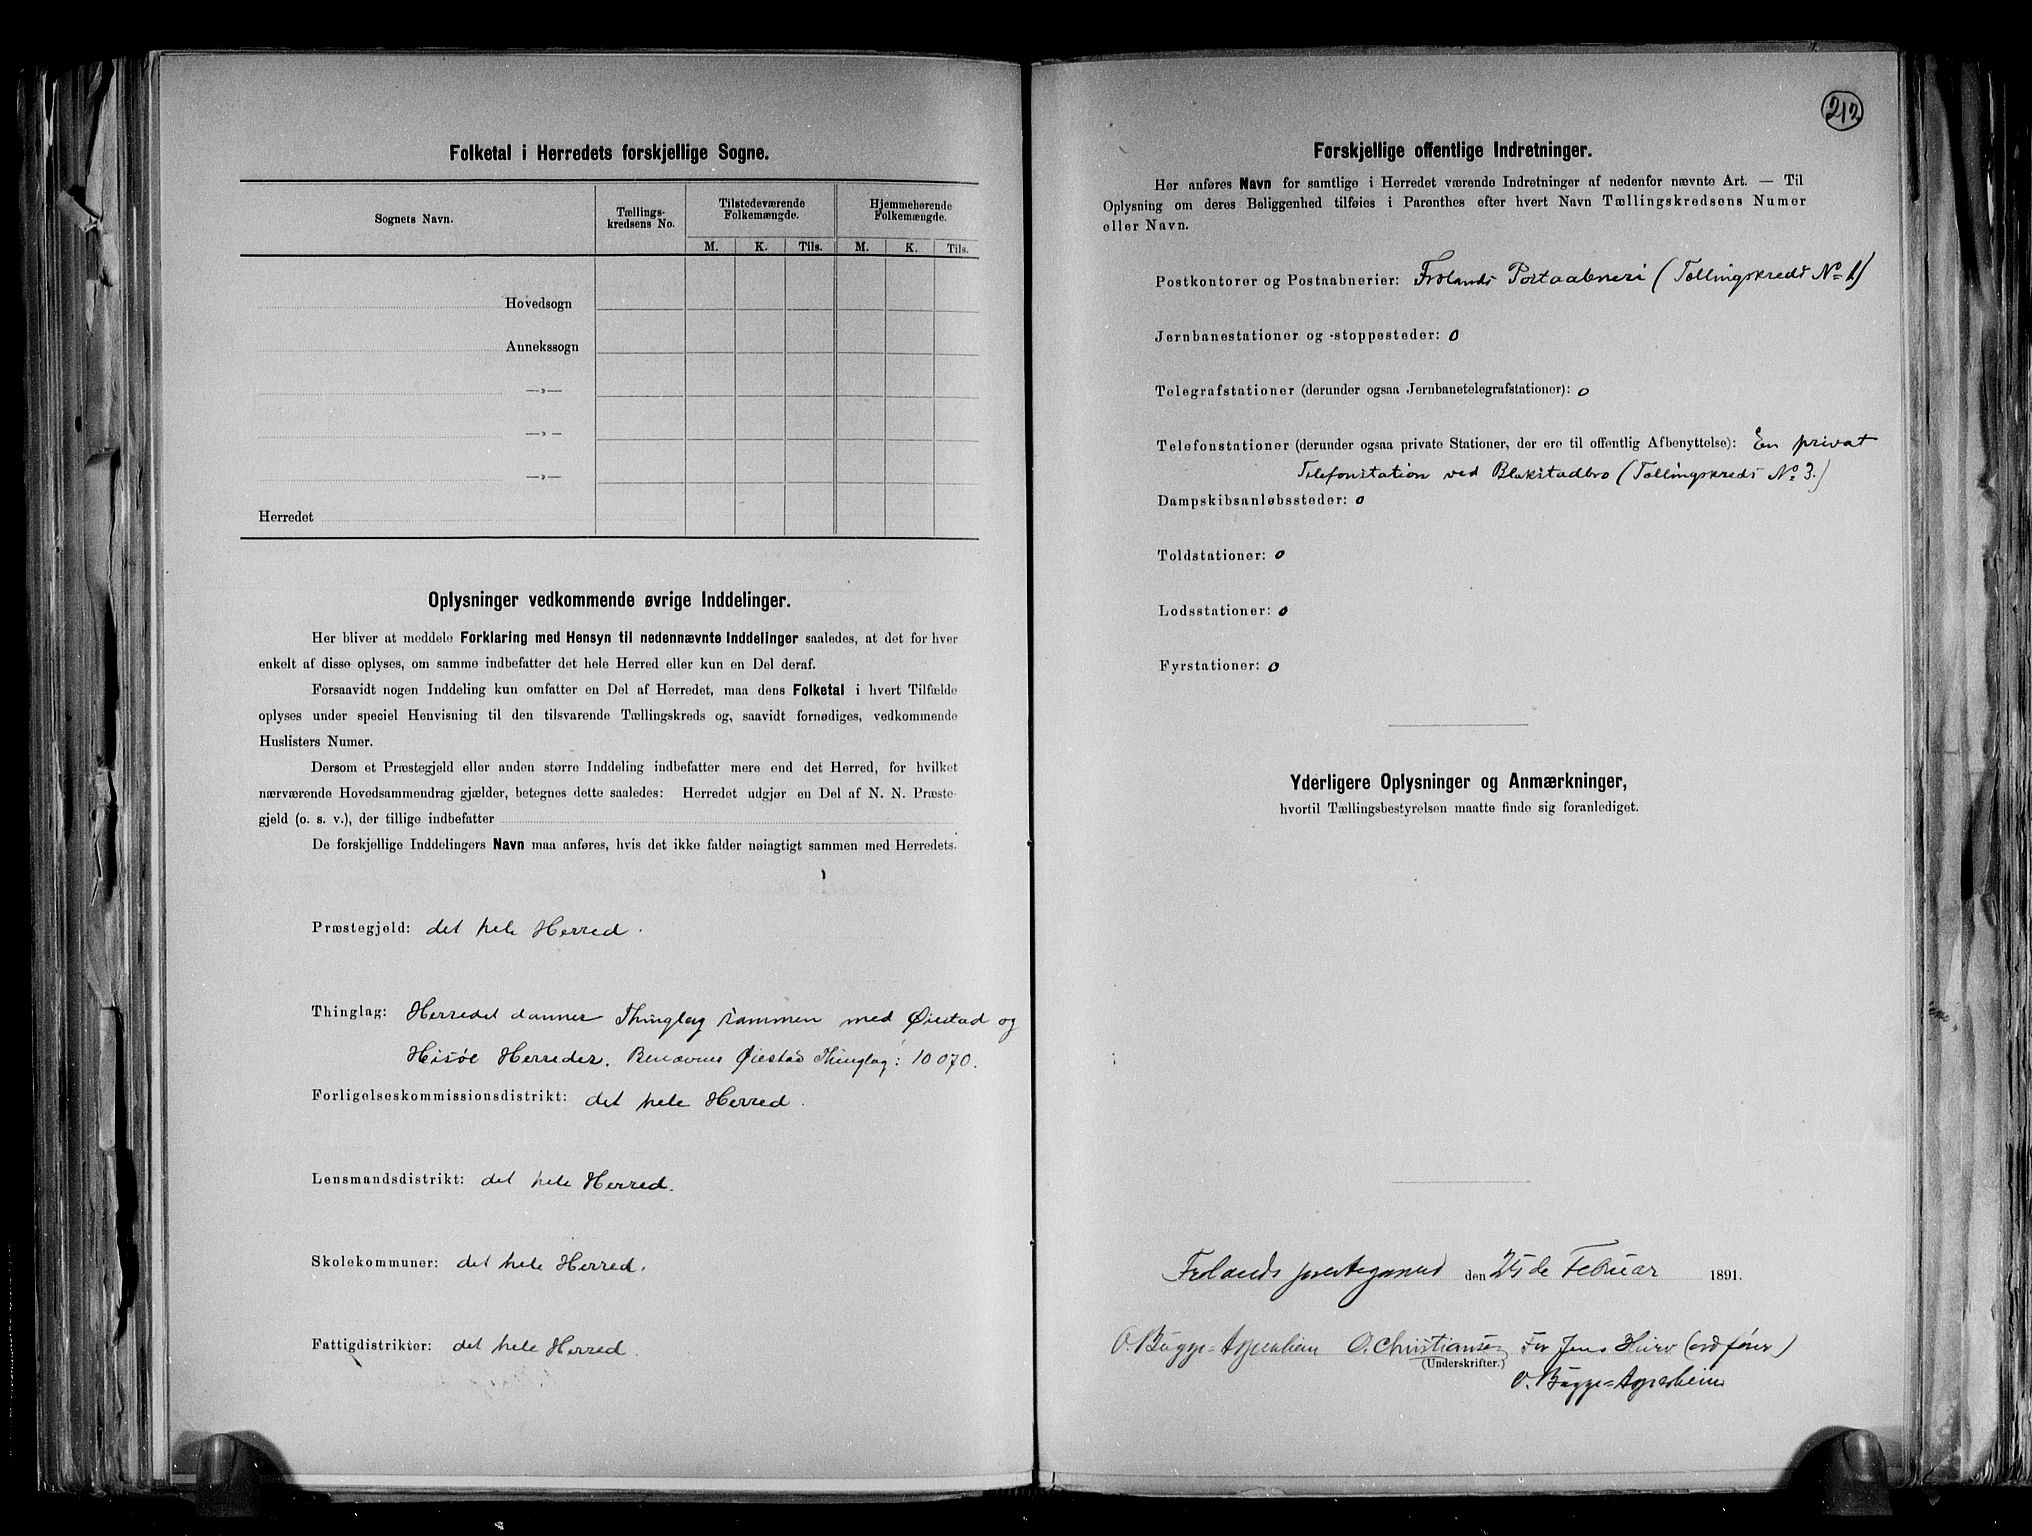 Folketal i Herredets forskjellige Sogne.
Sognets Navn.
Tællings-
kredsens No.
Tilstedeværende
Folkemængde.
Hjemmehørende
Folkemængde.
M. K. Tils. M. K. Tils.
Hovedsogn
Annekssogn
—„—
—„—
—„—
Herredet
Oplysninger vedkommende øvrige Inddelinger.
Her bliver at meddele Forklaring med Hensyn til nedennævnte Inddelinger saaledes, at det for hver
enkelt af disse oplyses, om samme indbefatter det hele Herred eller kun en Del deraf.
Forsaavidt nogen Inddeling kun omfatter en Del af Herredet, maa dens Folketal i hvert Tilfælde
oplyses under speciel Henvisning til den tilsvarende Tællingskreds og, saavidt fornødiges, vedkommende
Huslisters Numer.
Dersom et Præstegjeld eller anden større Inddeling indbefatter mere end det Herred, for hvilket
nærværende Hovedsammendrag gjælder, betegnes dette saaledes: Herredet udgjør en Del af N. N. Præste-
gjeld (o. s. v.), der tillige indbefatter
De forskjellige Inddelingers Navn maa anføres, hvis det ikke falder nøiagtigt sammen med Herredets.
Præstegjeld: det hele Herred.
Thinglag: Herredet danner Thinglag sammen med Øiestad og
Hisøe Herreder. Benævnes Øiestad Thinglag: 10 070.
Forligelseskommissionsdistrikt: det hele Herred.
Lensmandsdistrikt: det hele Herred.
Skolekommuner: det hele Herred.
Fattigdistrikter: det hele Herred.
212
Forskjellige offentlige Indretninger.
Her anføres Navn for samtlige i Herredet værende Indretninger af nedenfor nævnte Art. — Til
Oplysning om deres Beliggenhed tilføies i Parenthes efter hvert Navn Tællingskredsens Numer
eller Navn.
Postkontorer og Postaabnerier: Frolands Postaabneri (Tællingskreds No 1)
Jernbanestationer og -stoppesteder: 0
Telegrafstationer (derunder ogsaa Jernbanetelegrafstationer): 0
Telefonstationer (derunder ogsaa private Stationer, der ere til offentlig Afbenyttelse): En privat
Telefonstation ved Blakstadbro (Tællingskreds No 3.)
Dampskibsanløbssteder: 0
Toldstationer: 0
Lodsstationer: 0
Fyrstationer: 0
Yderligere Oplysninger og Anmærkninger,
hvortil Tællingsbestyrelsen maatte finde sig foranlediget.
Frolands præstegaard den 25de Februar 1891.
O. Bugge=Aspenheim O. Christiansen For Jens Hurv (ordfører)
(Underskrifter.)
O. Bugge=Aspenheim